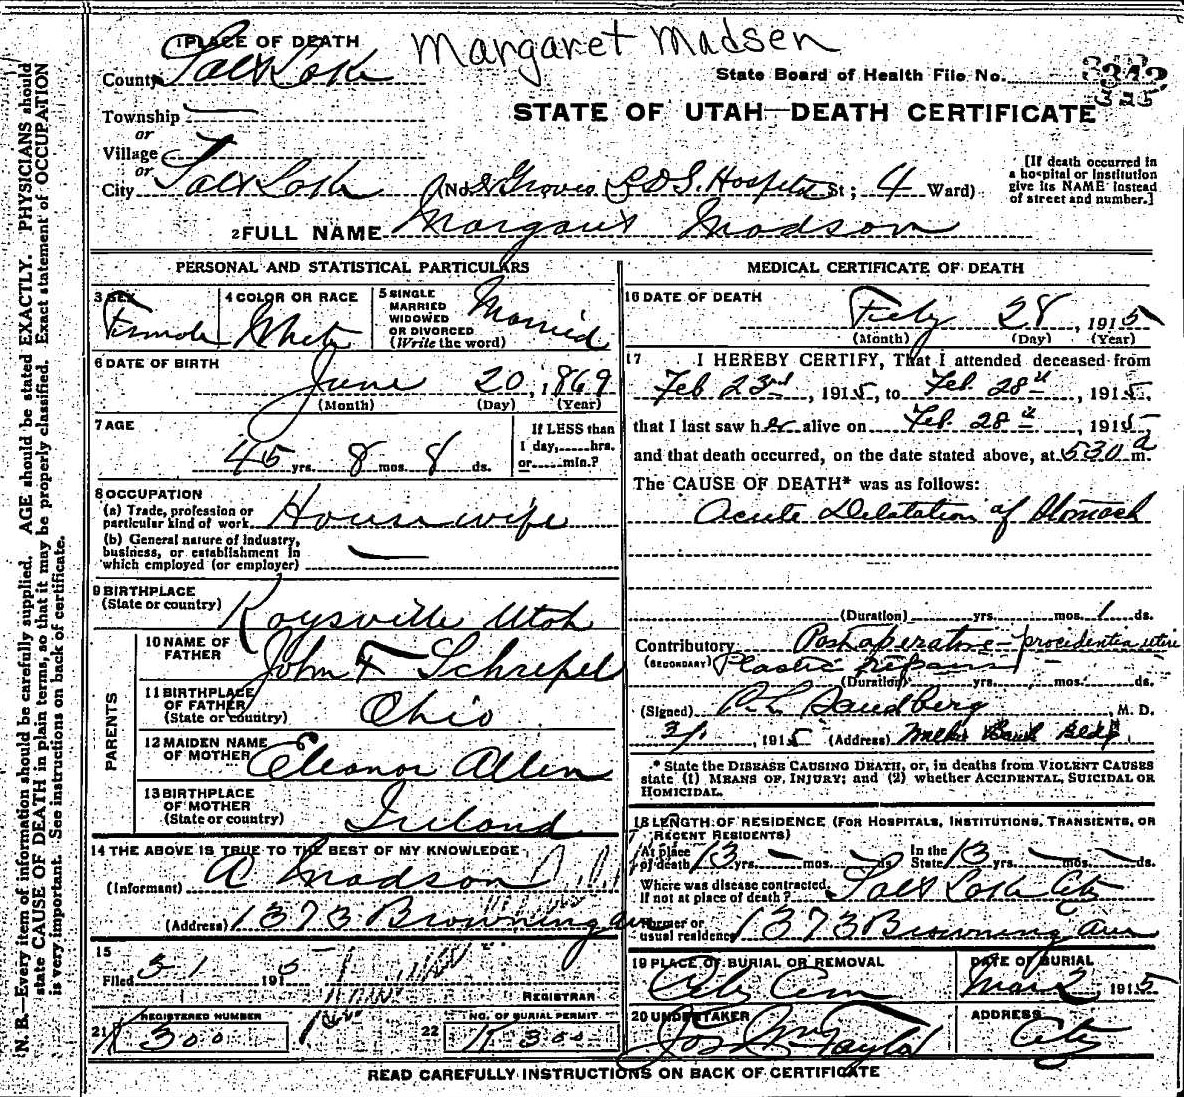 Margaret Madsen
1 PLACE OF DEATH
County Salt Lake
State Board of Health File No.
325
Township
or
Village
or
City Salt Lake (No. Groves L.D.S. Hospital St; 4 Ward)
STATE OF UTAH—DEATH CERTIFICATE
[If death occurred in
a hospital or institution
give its NAME instead
of street and number.]
2 FULL NAME Margaret Madson
PERSONAL AND STATISTICAL PARTICULARS
3 SEX Female
4 COLOR OR RACE White
5 SINGLE
MARRIED
WIDOWED
OR DIVORCED
(Write the word) Married
6 DATE OF BIRTH
June 20, 1869
(Month) (Day) (Year)
7 AGE
45 yrs. 8 mos. 8 ds.
If LESS than
1 day,......hrs.
or......min.?
8 OCCUPATION
(a) Trade, profession or
particular kind of work Housewife
(b) General nature of industry,
business, or establishment in
which employed (or employer)
9 BIRTHPLACE
(State or country) Kaysville Utah
PARENTS
10 NAME OF
FATHER John F Schrepel
11 BIRTHPLACE
OF FATHER
(State or country) Ohio
12 MAIDEN NAME
OF MOTHER Eleanor Allen
13 BIRTHPLACE
OF MOTHER
(State or country) Ireland
14 THE ABOVE IS TRUE TO THE BEST OF MY KNOWLEDGE
(Informant) A Madson
(Address) 1373 Browning ave
15
Filed 3 1 1915
REGISTRAR
REGISTERED NUMBER
21 300
NO. OF BURIAL PERMIT
22 300
MEDICAL CERTIFICATE OF DEATH
16 DATE OF DEATH
Feby 28, 1915
(Month) (Day) (Year)
17 I HEREBY CERTIFY, That I attended deceased from
Feb 23rd, 1915, to Feb. 28th, 1915,
that I last saw her alive on Feb. 28th, 1915,
and that death occurred, on the date stated above, at 530 a m.
The CAUSE OF DEATH* was as follows:
Acute Dilatation of Stomach
(Duration) yrs. mos. 1 ds.
Contributory Post operative - procidentia uteri
(SECONDARY) Plastic repairs
(Duration) yrs. mos. ds.
(Signed) Sandberg, M. D.
3/1, 1915 (Address) Walker Bank Bldg.
* State the DISEASE CAUSING DEATH, or, in deaths from VIOLENT CAUSES
state (1) MEANS OF INJURY; and (2) whether ACCIDENTAL, SUICIDAL OR
HOMICIDAL.
18 LENGTH OF RESIDENCE (FOR HOSPITALS, INSTITUTIONS, TRANSIENTS, OR
RECENT RESIDENTS)
At place
of death 13 yrs. mos. ds.
In the
State 13 yrs. mos. ds.
Where was disease contracted,
if not at place of death? Salt Lake City
Former or
usual residence 1373 Browning ave
19 PLACE OF BURIAL OR REMOVAL
City Cem
DATE OF BURIAL
Mar 2, 1915
20 UNDERTAKER
Jos Wm Taylor
ADDRESS
City
READ CAREFULLY INSTRUCTIONS ON BACK OF CERTIFICATE
N. B.—Every item of information should be carefully supplied. AGE should be stated EXACTLY. PHYSICIANS should
state CAUSE OF DEATH in plain terms, so that it may be properly classified. Exact statement of OCCUPATION
is very important. See instructions on back of certificate.